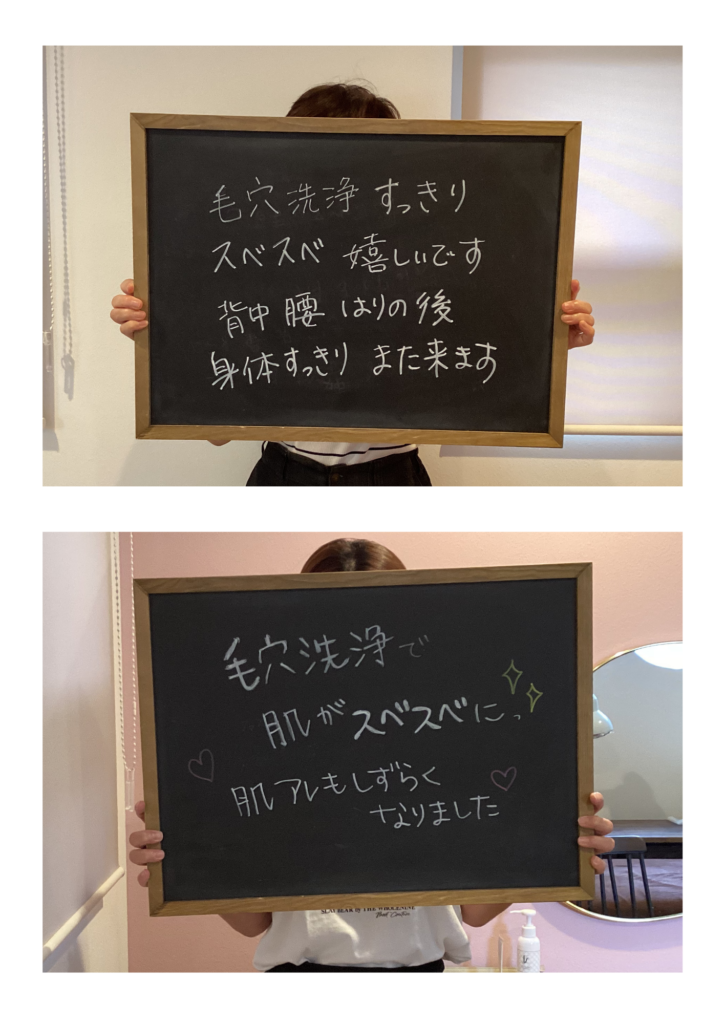 毛穴洗浄 すっきり
スベスベ 嬉しいです
背中 腰 はりの後
身体すっきり また来ます
毛穴洗浄で
肌がスベスベにっ
肌アレもしずらく
なりました